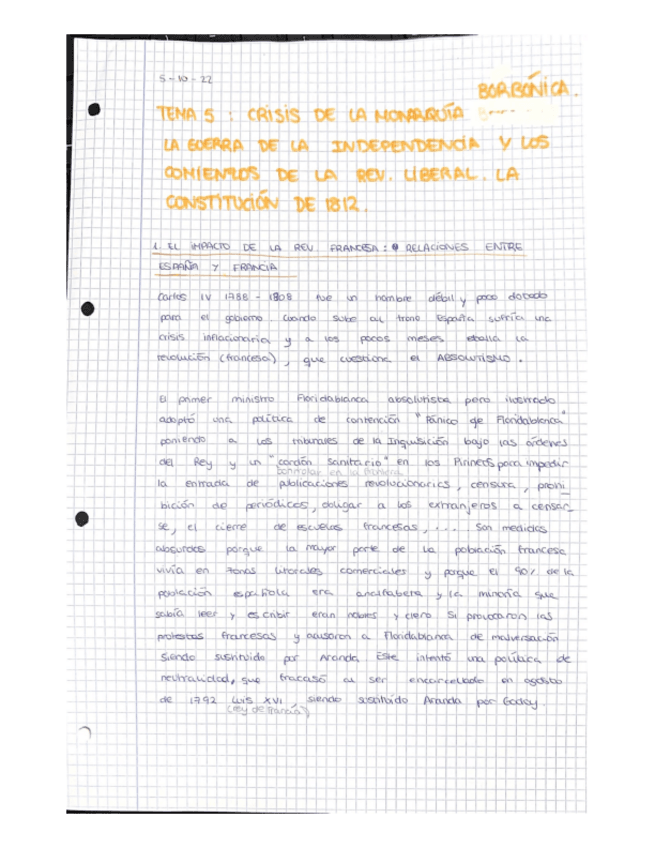 5-10-22
BORBÓNICA.
TEMA 5 : CRISIS DE LA MONARQUÍA
LA GUERRA DE LA INDEPENDENCIA Y LOS
COMIENZOS DE LA REV. LIBERAL. LA
CONSTITUCIÓN DE 1812.
1. EL IMPACTO DE LA REV. FRANCESA: RELACIONES ENTRE
ESPAÑA Y FRANCIA
Carlos IV 1788 - 1808 fue un hombre débil y poco dotado
para el gobierno. Cuando sube al trono España sufría una
crisis inflacionaria y a los pocos meses estalla la
revolución (francesa), que cuestiona el ABSOLUTISMO.
El primer ministro Floridablanca absolutista pero ilustrado
adoptó una política de contención "Pánico de Floridablanca"
poniendo a los tribunales de la Inquisición bajo las órdenes
del Rey y un "cordón sanitario" en los Pirineos para impedir
controlar en la frontera
la entrada de publicaciones revolucionarias, censura, prohi
bición de periódicos, obligar a los extranjeros a censar_
se, el cierre de escuelas francesas, ... Son medidas
absurdas porque la mayor parte de la población francesa
vivía en zonas litorales comerciales y porque el 90% de la
población española era analfabeta y la minoría que
sabía leer y escribir eran nobles y clero. Si provocaron las
protestas francesas y acusaron a Floridablanca de malversación
siendo sustituido por Aranda. Este intentó una política de
neutralidad, que fracasó al ser encarcelado en agosto
de 1792 Luis XVI siendo sustituido Aranda por Godoy.
(Rey de Francia)